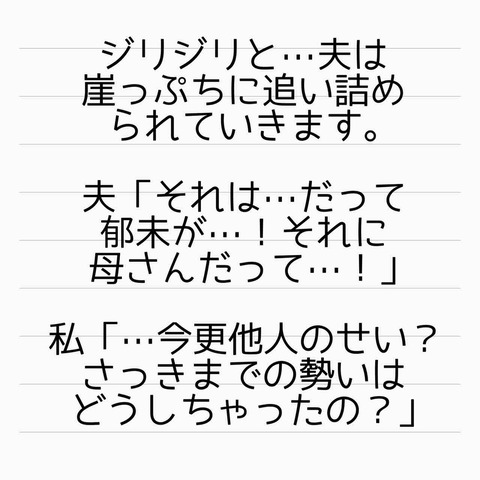 ジリジリと…夫は
崖っぷちに追い詰め
られていきます。
夫「それは…だって
郁未が…！それに
母さんだって…！」
私「…今更他人のせい？
さっきまでの勢いは
どうしちゃったの？」